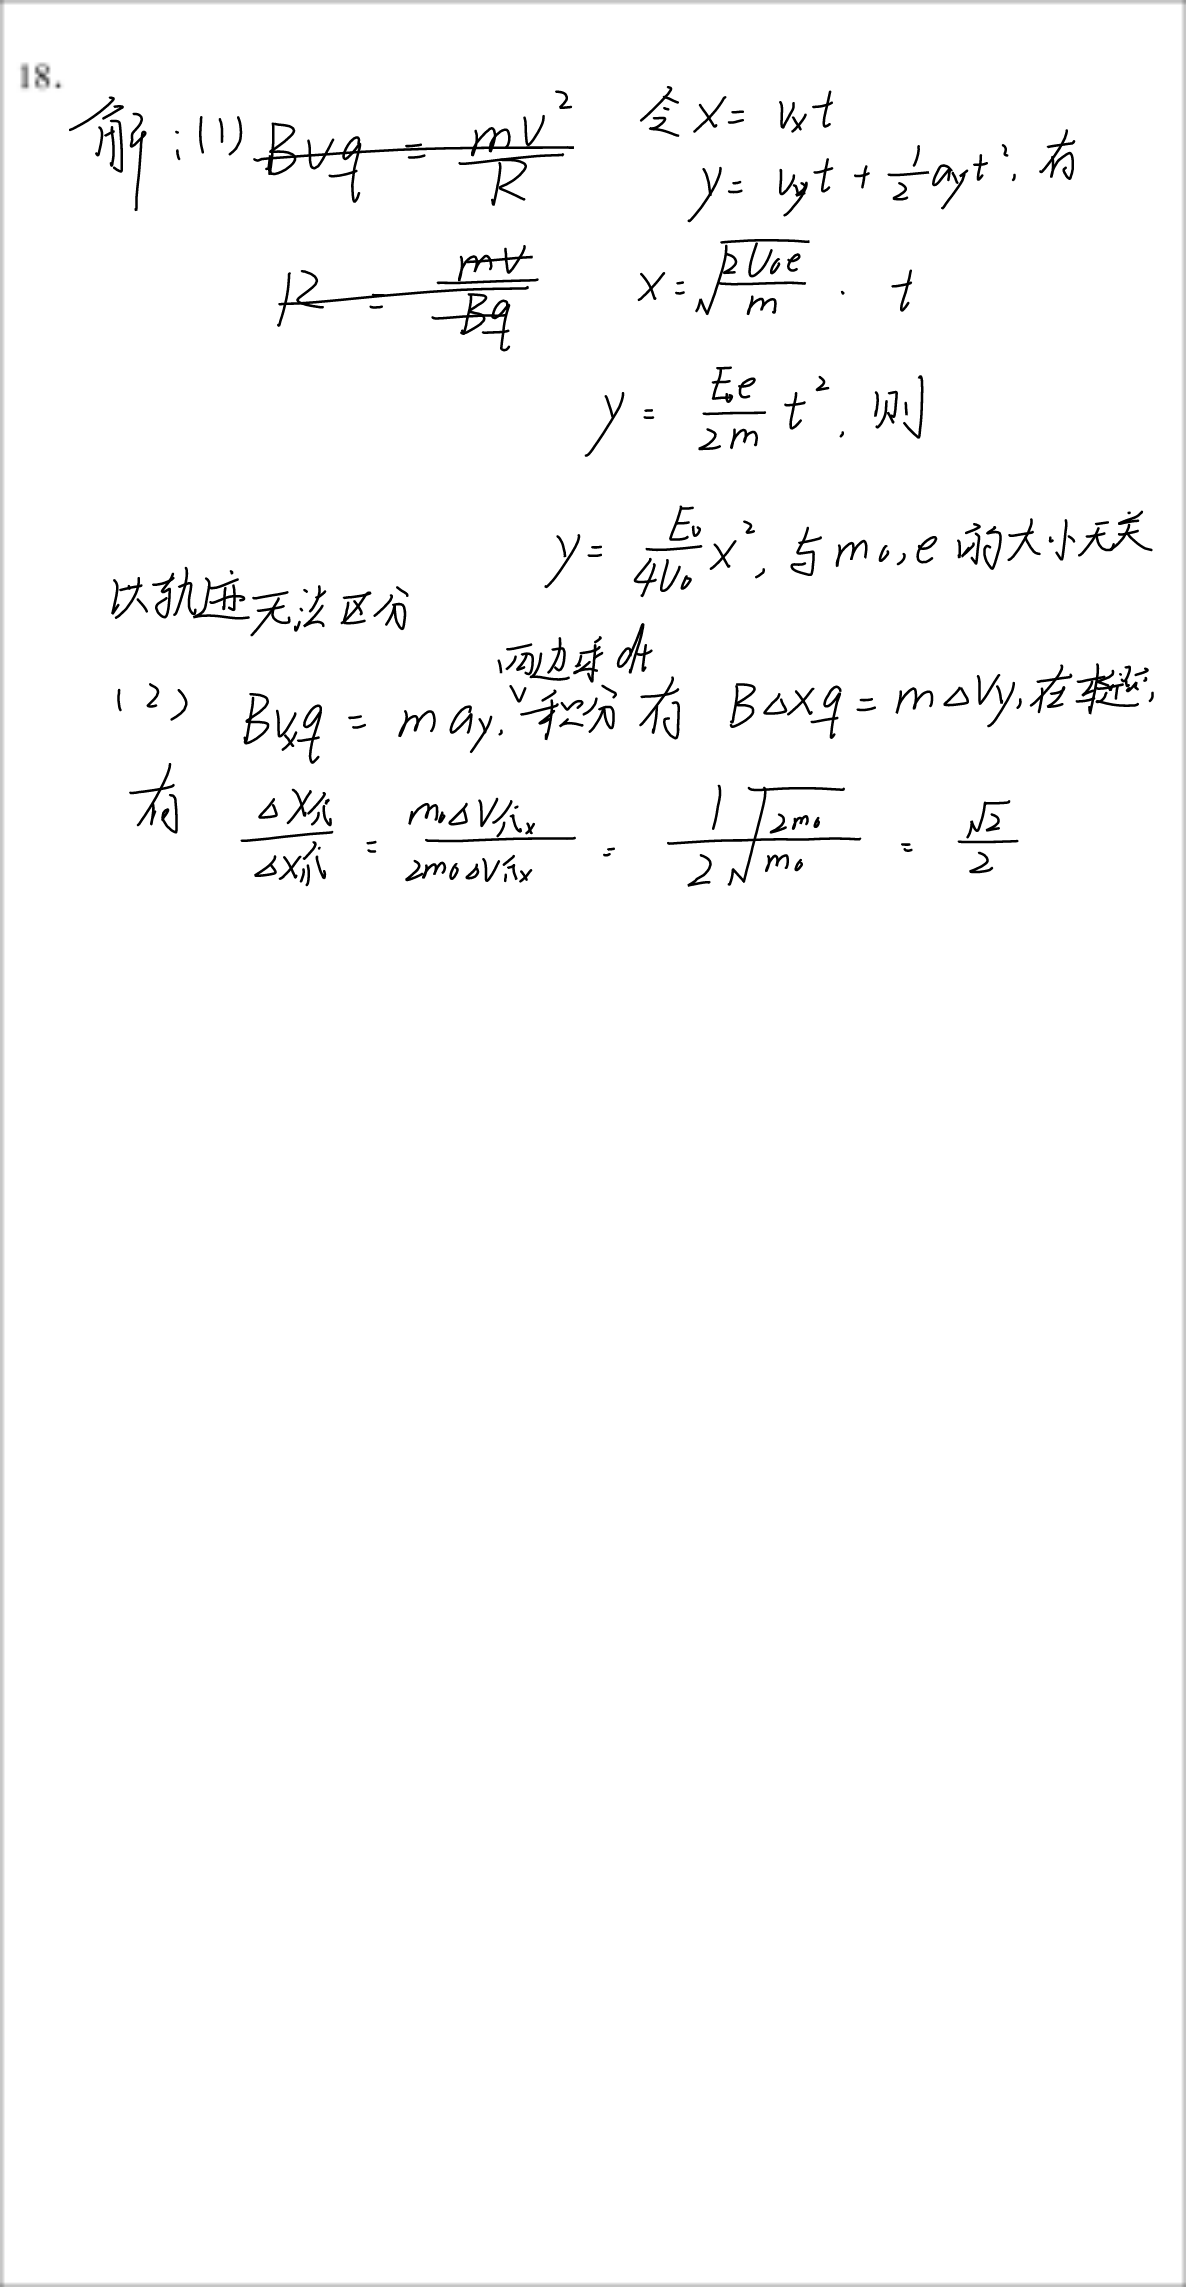 18.
解:(1) Bvq = mv²/R 令 x = vₓt
y = v_y t + 1/2 a_y t², 有
R = mv/Bq x = √(2U₀e/m) · t
y = E₀e/2m t², 则
y = E₀/4U₀ x², 与m₀,e的大小无关
以轨迹无法区分
两边乘dt
(2) Bvₓq = ma_y, 积分有 BΔxq = mΔv_y, 在本题,
有 Δx/Δx = m₀Δvₓ/2m₀Δvₓ = 1/2 √(2m₀/m₀) = √2/2